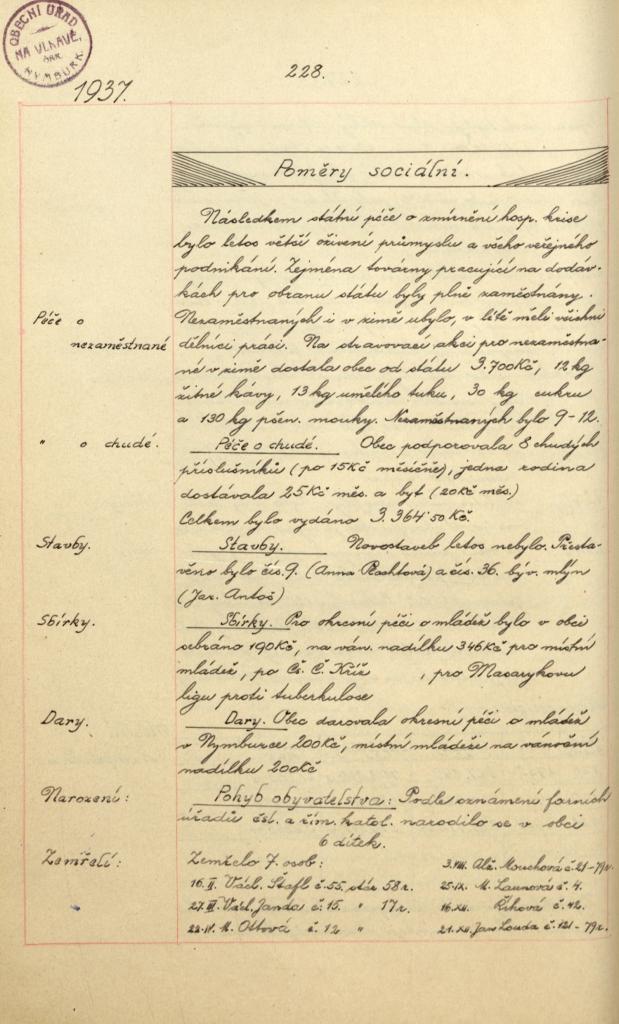 OBECNÍ ÚŘAD
NA VLKAVĚ,
OKR.
NYMBURK.
228.
1937.
Poměry sociální.
Následkem státní péče o zmírnění hosp. krise
bylo letos větší oživení průmyslu a všeho veřejného
podnikání. Zejména továrny pracující na dodáv-
kách pro obranu státu byly plně zaměstnány.
Péče o nezaměstnané
Nezaměstnaných i v zimě ubylo, v létě měli všichni
dělníci práci. Na stravovací akci pro nezaměstna-
né v zimě dostala obec od státu 3.700Kč, 12 kg
žitné kávy, 13 kg umělého tuku, 30 kg cukru
a 130 kg pšen. mouky. Nezaměstnaných bylo 9-12.
" o chudé.
Péče o chudé. Obec podporovala 8 chudých
příslušníků (po 15Kč měsíčně), jedna rodina
dostávala 25Kč měs. a byt (20Kč měs.)
Celkem bylo vydáno 3.364·50 Kč.
Stavby.
Stavby. Novostaveb letos nebylo. Přesta-
věno bylo čís. 9. (Anna Rachtová) a čís. 36. býv. mlýn
(Jar. Antoš)
Sbírky.
Sbírky. Pro okresní péči o mládež bylo v obci
sebráno 190Kč, na ván. nadílku 346Kč pro místní
mládež, po Čs. Č. Kříž , pro Masarykovu
ligu proti tuberkulose
Dary.
Dary. Obec darovala okresní péči o mládež
v Nymburce 200Kč, místní mládeži na vánoční
nadílku 200Kč
Narození:
Pohyb obyvatelstva: Podle oznámení farních
úřadů čsl. a řím. katol. narodilo se v obci
6 dítek.
Zemřelí:
Zemřelo 7. osob:
3.VIII. Alž. Mouchová č. 21 - 79r.
16.II. Václ. Štafl č. 55, stár 58r.
25.IX. M. Launová č. 4.
27.III. Václ. Janda č. 15. " 17r.
16.XII. Řihová č. 42.
22.IV. M. Ottová č. 12 "
21.XII. Jan Louda č. 121 - 79r.